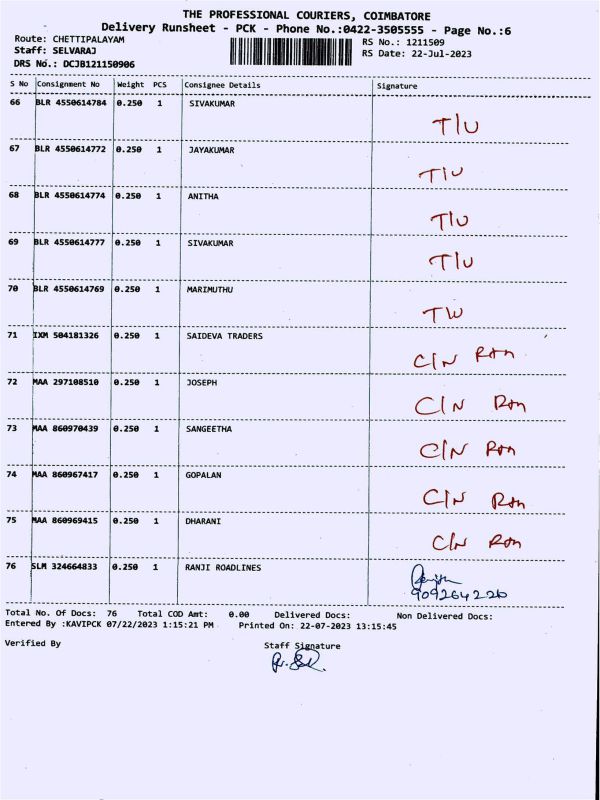 THE PROFESSIONAL COURIERS, COIMBATORE
Delivery Runsheet - PCK - Phone No.:0422-3505555 - Page No.:6
Route: CHETTIPALAYAM RS No.: 1211509
Staff: SELVARAJ RS Date: 22-Jul-2023
DRS No.: DCJB121150906
S No Consignment No Weight PCS Consignee Details Signature
66 BLR 4550614784 0.250 1 SIVAKUMAR
T/U
67 BLR 4550614772 0.250 1 JAYAKUMAR
T/U
68 BLR 4550614774 0.250 1 ANITHA
T/U
69 BLR 4550614777 0.250 1 SIVAKUMAR
T/U
70 BLR 4550614769 0.250 1 MARIMUTHU
T/U
71 IXM 504181326 0.250 1 SAIDEVA TRADERS
C/N
72 MAA 297108510 0.250 1 JOSEPH
C/N
73 MAA 860970439 0.250 1 SANGEETHA
C/N
74 MAA 860967417 0.250 1 GOPALAN
C/N
75 MAA 860969415 0.250 1 DHARANI
C/N
76 SLM 324664833 0.250 1 RANJI ROADLINES
Total No. Of Docs: 76 Total COD Amt: 0.00 Delivered Docs: Non Delivered Docs:
Entered By :KAVIPCK 07/22/2023 1:15:21 PM Printed On: 22-07-2023 13:15:45
Verified By Staff Signature